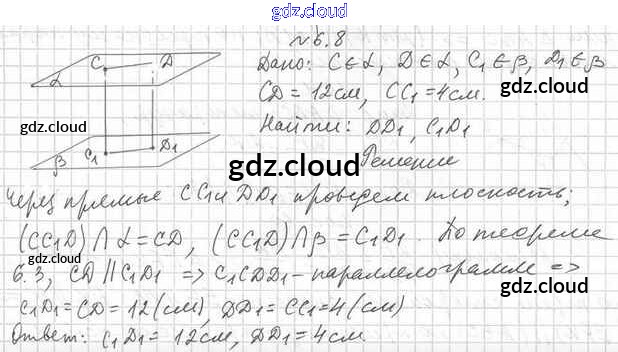 gdz.cloud
№ 6.8
C D
α
Дано: C∈α, D∈α, C₁∈β, D₁∈β
CD = 12см, CC₁ = 4см.
gdz.cloud
gdz.cloud
gdz.cloud
Найти: DD₁, C₁D₁
C₁ D₁
β
gdz.cloud
Решение
Через прямые CC₁ и DD₁ проведем плоскость;
(CC₁D) ∩ α = CD, (CC₁D) ∩ β = C₁D₁. По теореме
6.3, CD || C₁D₁ => C₁CDD₁ - параллелограмм =>
C₁D₁ = CD = 12 (см), DD₁ = CC₁ = 4 (см)
gdz.cloud
gdz.cloud
Ответ: C₁D₁ = 12см, DD₁ = 4см.